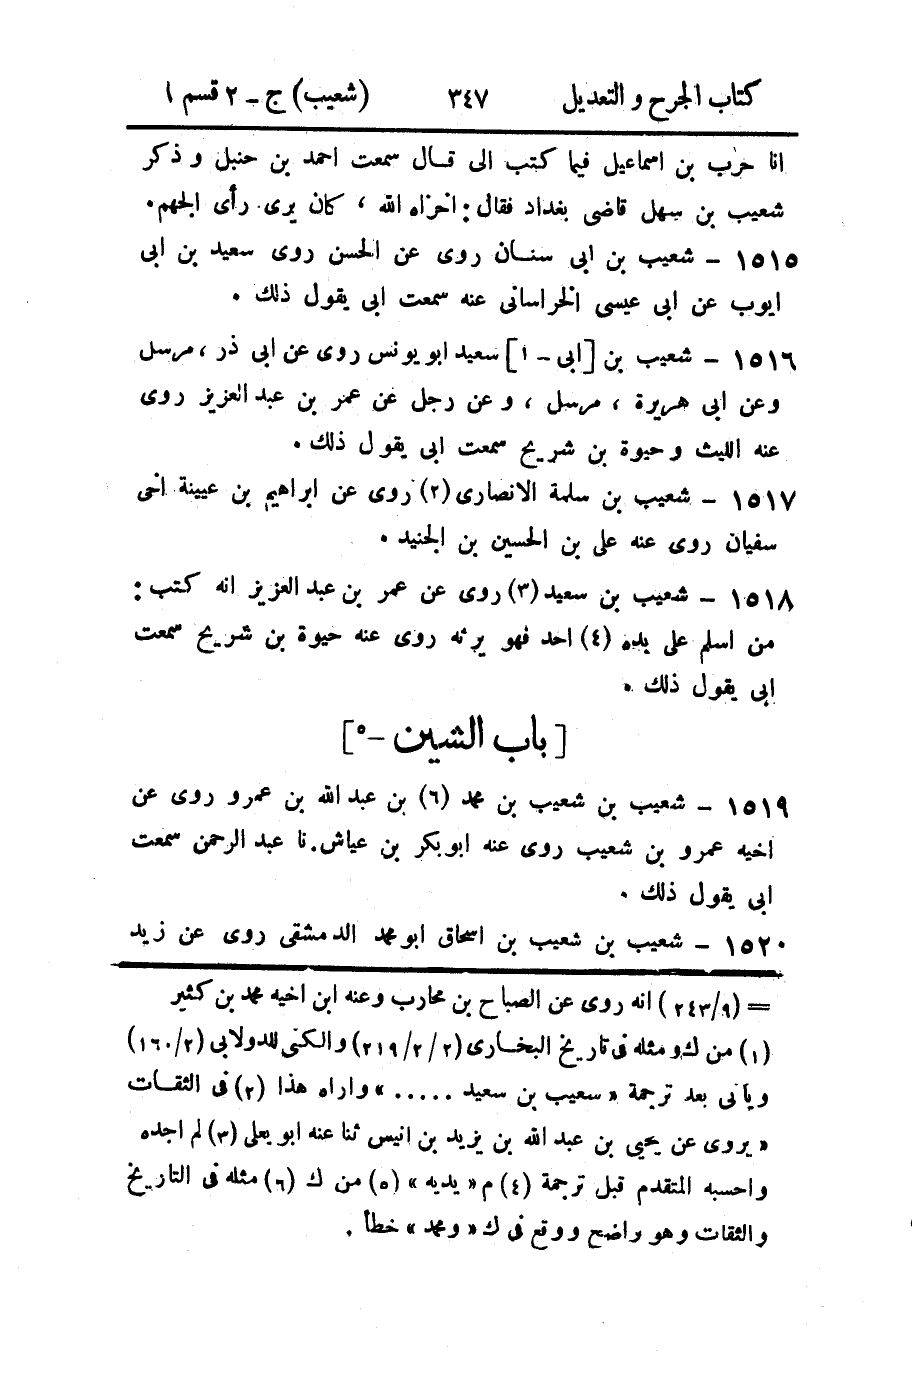 كتاب الجرح و التعديل ٣٤٧ (شعيب) ج - ٢ قسم ١
انا حرب بن اسماعيل فيما كتب الى قال سمعت احمد بن حنبل و ذكر
شعيب بن سهل قاضى بغداد فقال: اخزاه الله ، كان يرى رأى الجهم.
١٥١٥ - شعيب بن ابى سنان روى عن الحسن روى سعيد بن ابى
ايوب عن ابى عيسى الخراسانى عنه سمعت ابى يقول ذلك .
١٥١٦ - شعيب بن [ابى - ١] سعيد ابو يونس روى عن ابى ذر ، مرسل
وعن ابى هريرة ، مرسل ، و عن رجل عن عمر بن عبد العزيز روى
عنه الليث و حيوة بن شريح سمعت ابى يقول ذلك .
١٥١٧ - شعيب بن سلمة الانصارى (٢) روى عن ابراهيم بن عيينة اخى
سفيان روى عنه على بن الحسين بن الجنيد .
١٥١٨ - شعيب بن سعيد (٣) روى عن عمر بن عبد العزيز انه كتب :
من اسلم على يده (٤) احد فهو يرثه روى عنه حيوة بن شريح سمعت
ابى يقول ذلك .
[ باب الشين - ٥ ]
١٥١٩ - شعيب بن شعيب بن محمد (٦) بن عبد الله بن عمرو روى عن
اخيه عمرو بن شعيب روى عنه ابو بكر بن عياش . نا عبد الرحمن سمعت
ابى يقول ذلك .
١٥٢٠ - شعيب بن شعيب بن اسحاق ابو محمد الدمشقى روى عن زيد
= (٢٤٣/٩) انه روى عن الصباح بن محارب وعنه ابن اخيه محمد بن كثير
(١) من ك و مثله فى تاريخ البخارى (٢/ ٢/ ٢١٩) و الكنى للدولابى (١٦٠/٢)
و يأتى بعد ترجمة « سعيب بن سعيد ..... » واراه هذا (٢) فى الثقات
« يروى عن يحيى بن عبد الله بن يزيد بن انيس ثنا عنه ابو يعلى (٣) لم اجده
و احسبه المتقدم قبل ترجمة (٤) م « يديه » (٥) من ك (٦) مثله فى التاريخ
و الثقات و هو واضح ووقع فى ك « ومحمد » خطأ .